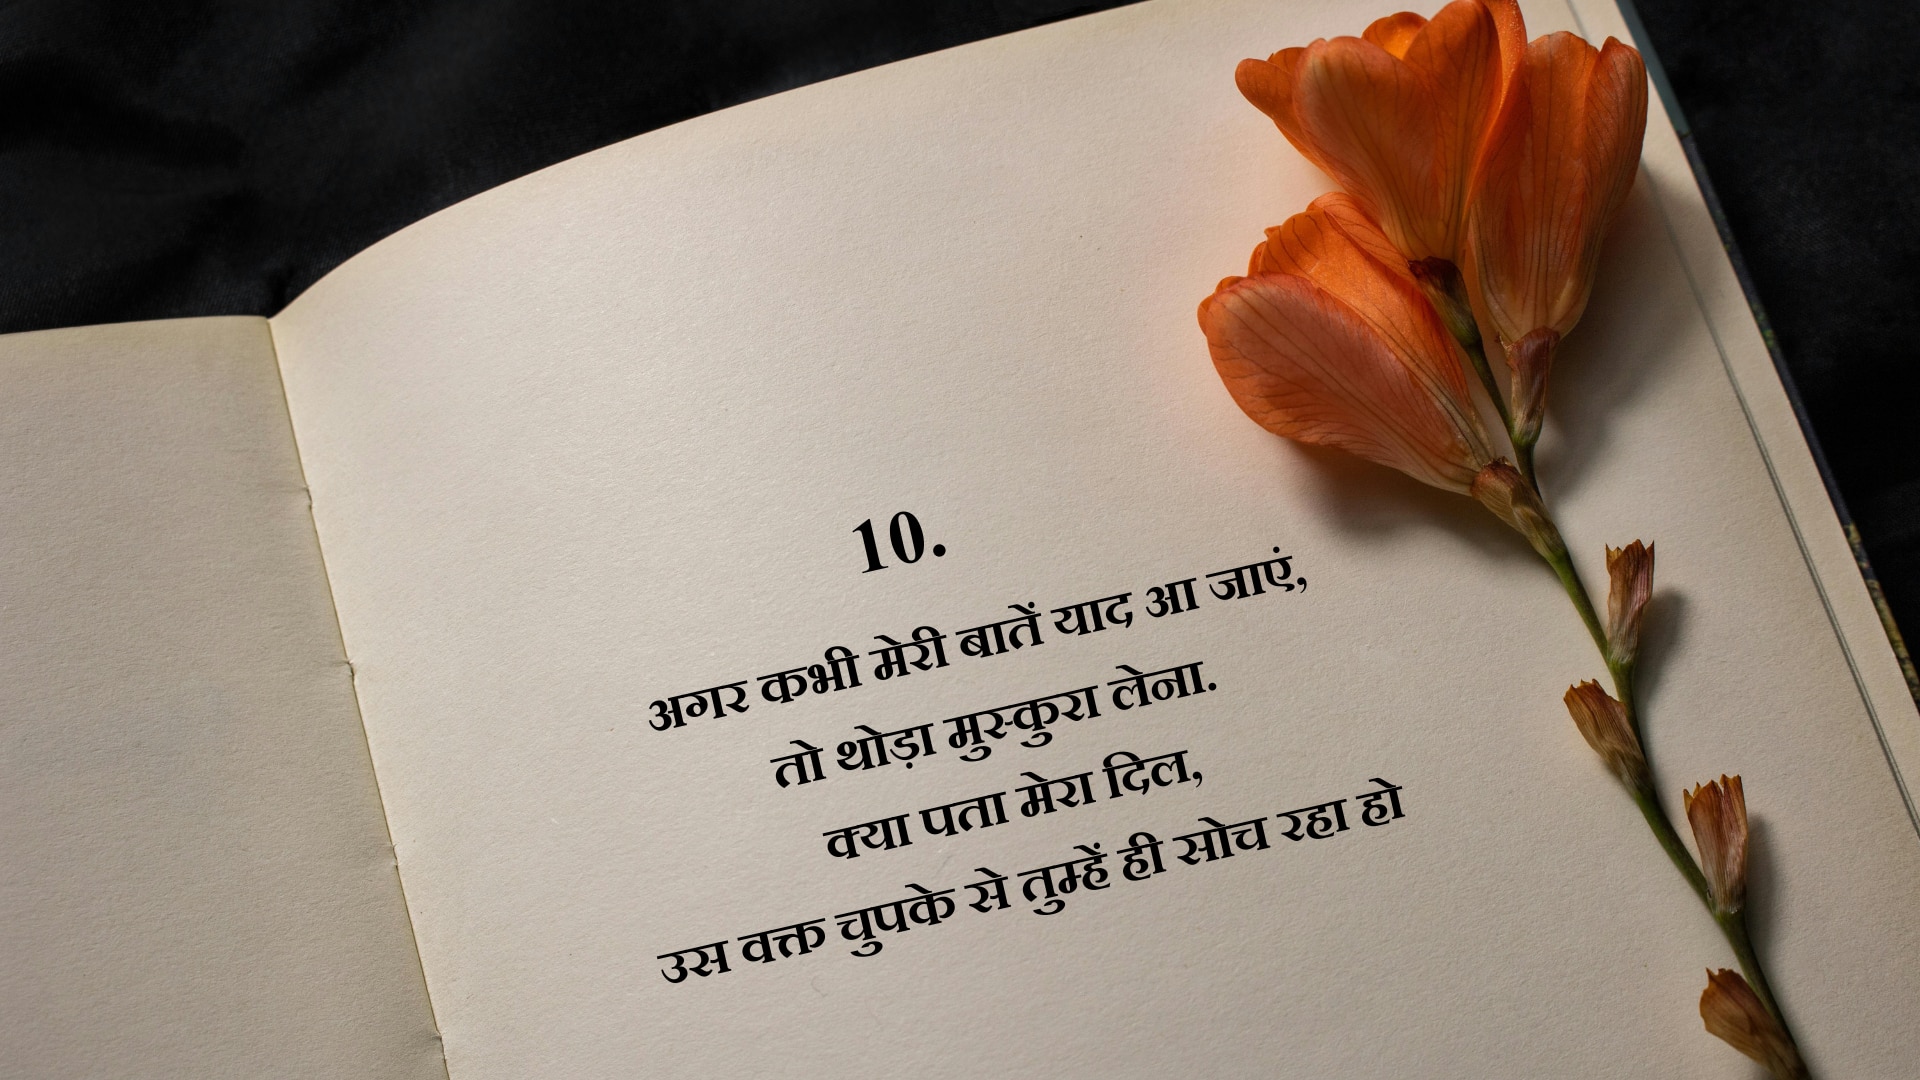 10.
अगर कभी मेरी बातें याद आ जाएं,
तो थोड़ा मुस्कुरा लेना.
क्या पता मेरा दिल,
उस वक्त चुपके से तुम्हें ही सोच रहा हो